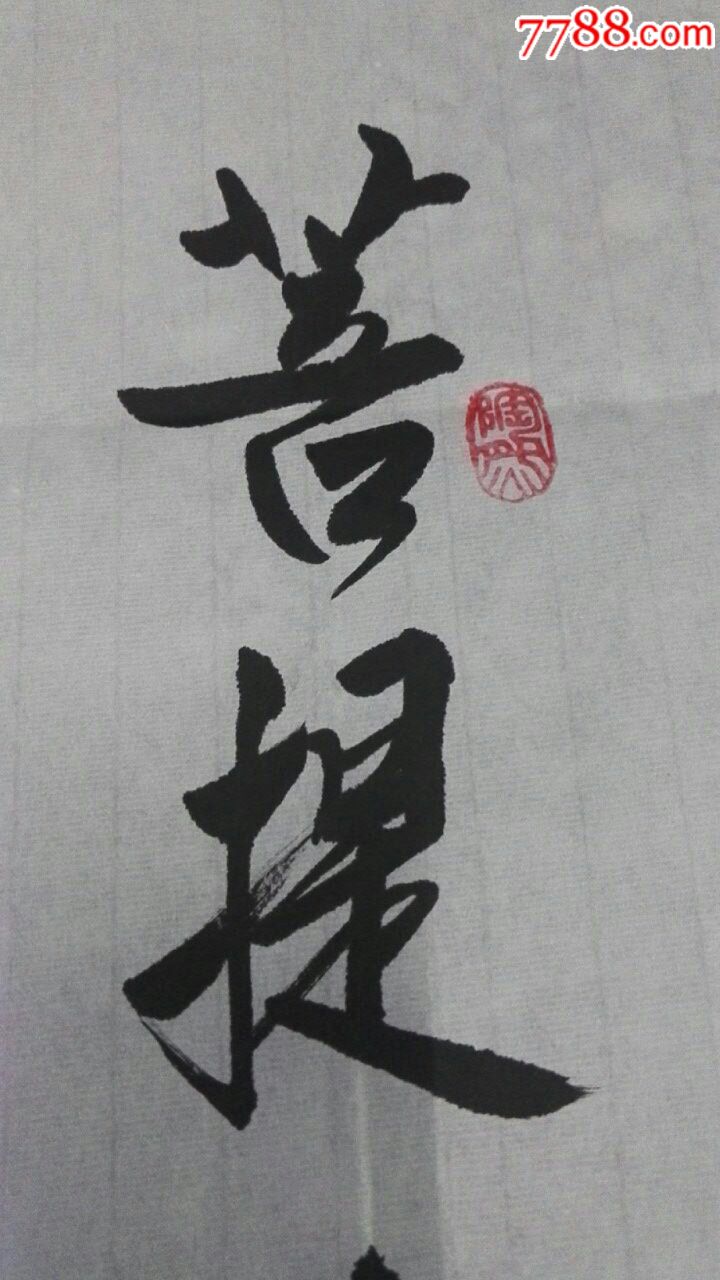 7788.com
菩
提